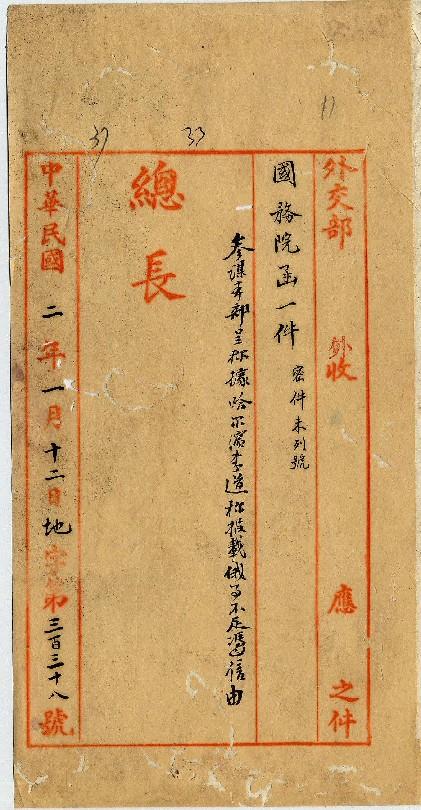 11
33
37
外交部 外收 應 之件
國務院函一件
密件未列號
參謀本部呈称據哈尔濱李道称報載俄事不足憑信由
總長
中華民國二年一月十二日地字第三百三十八號